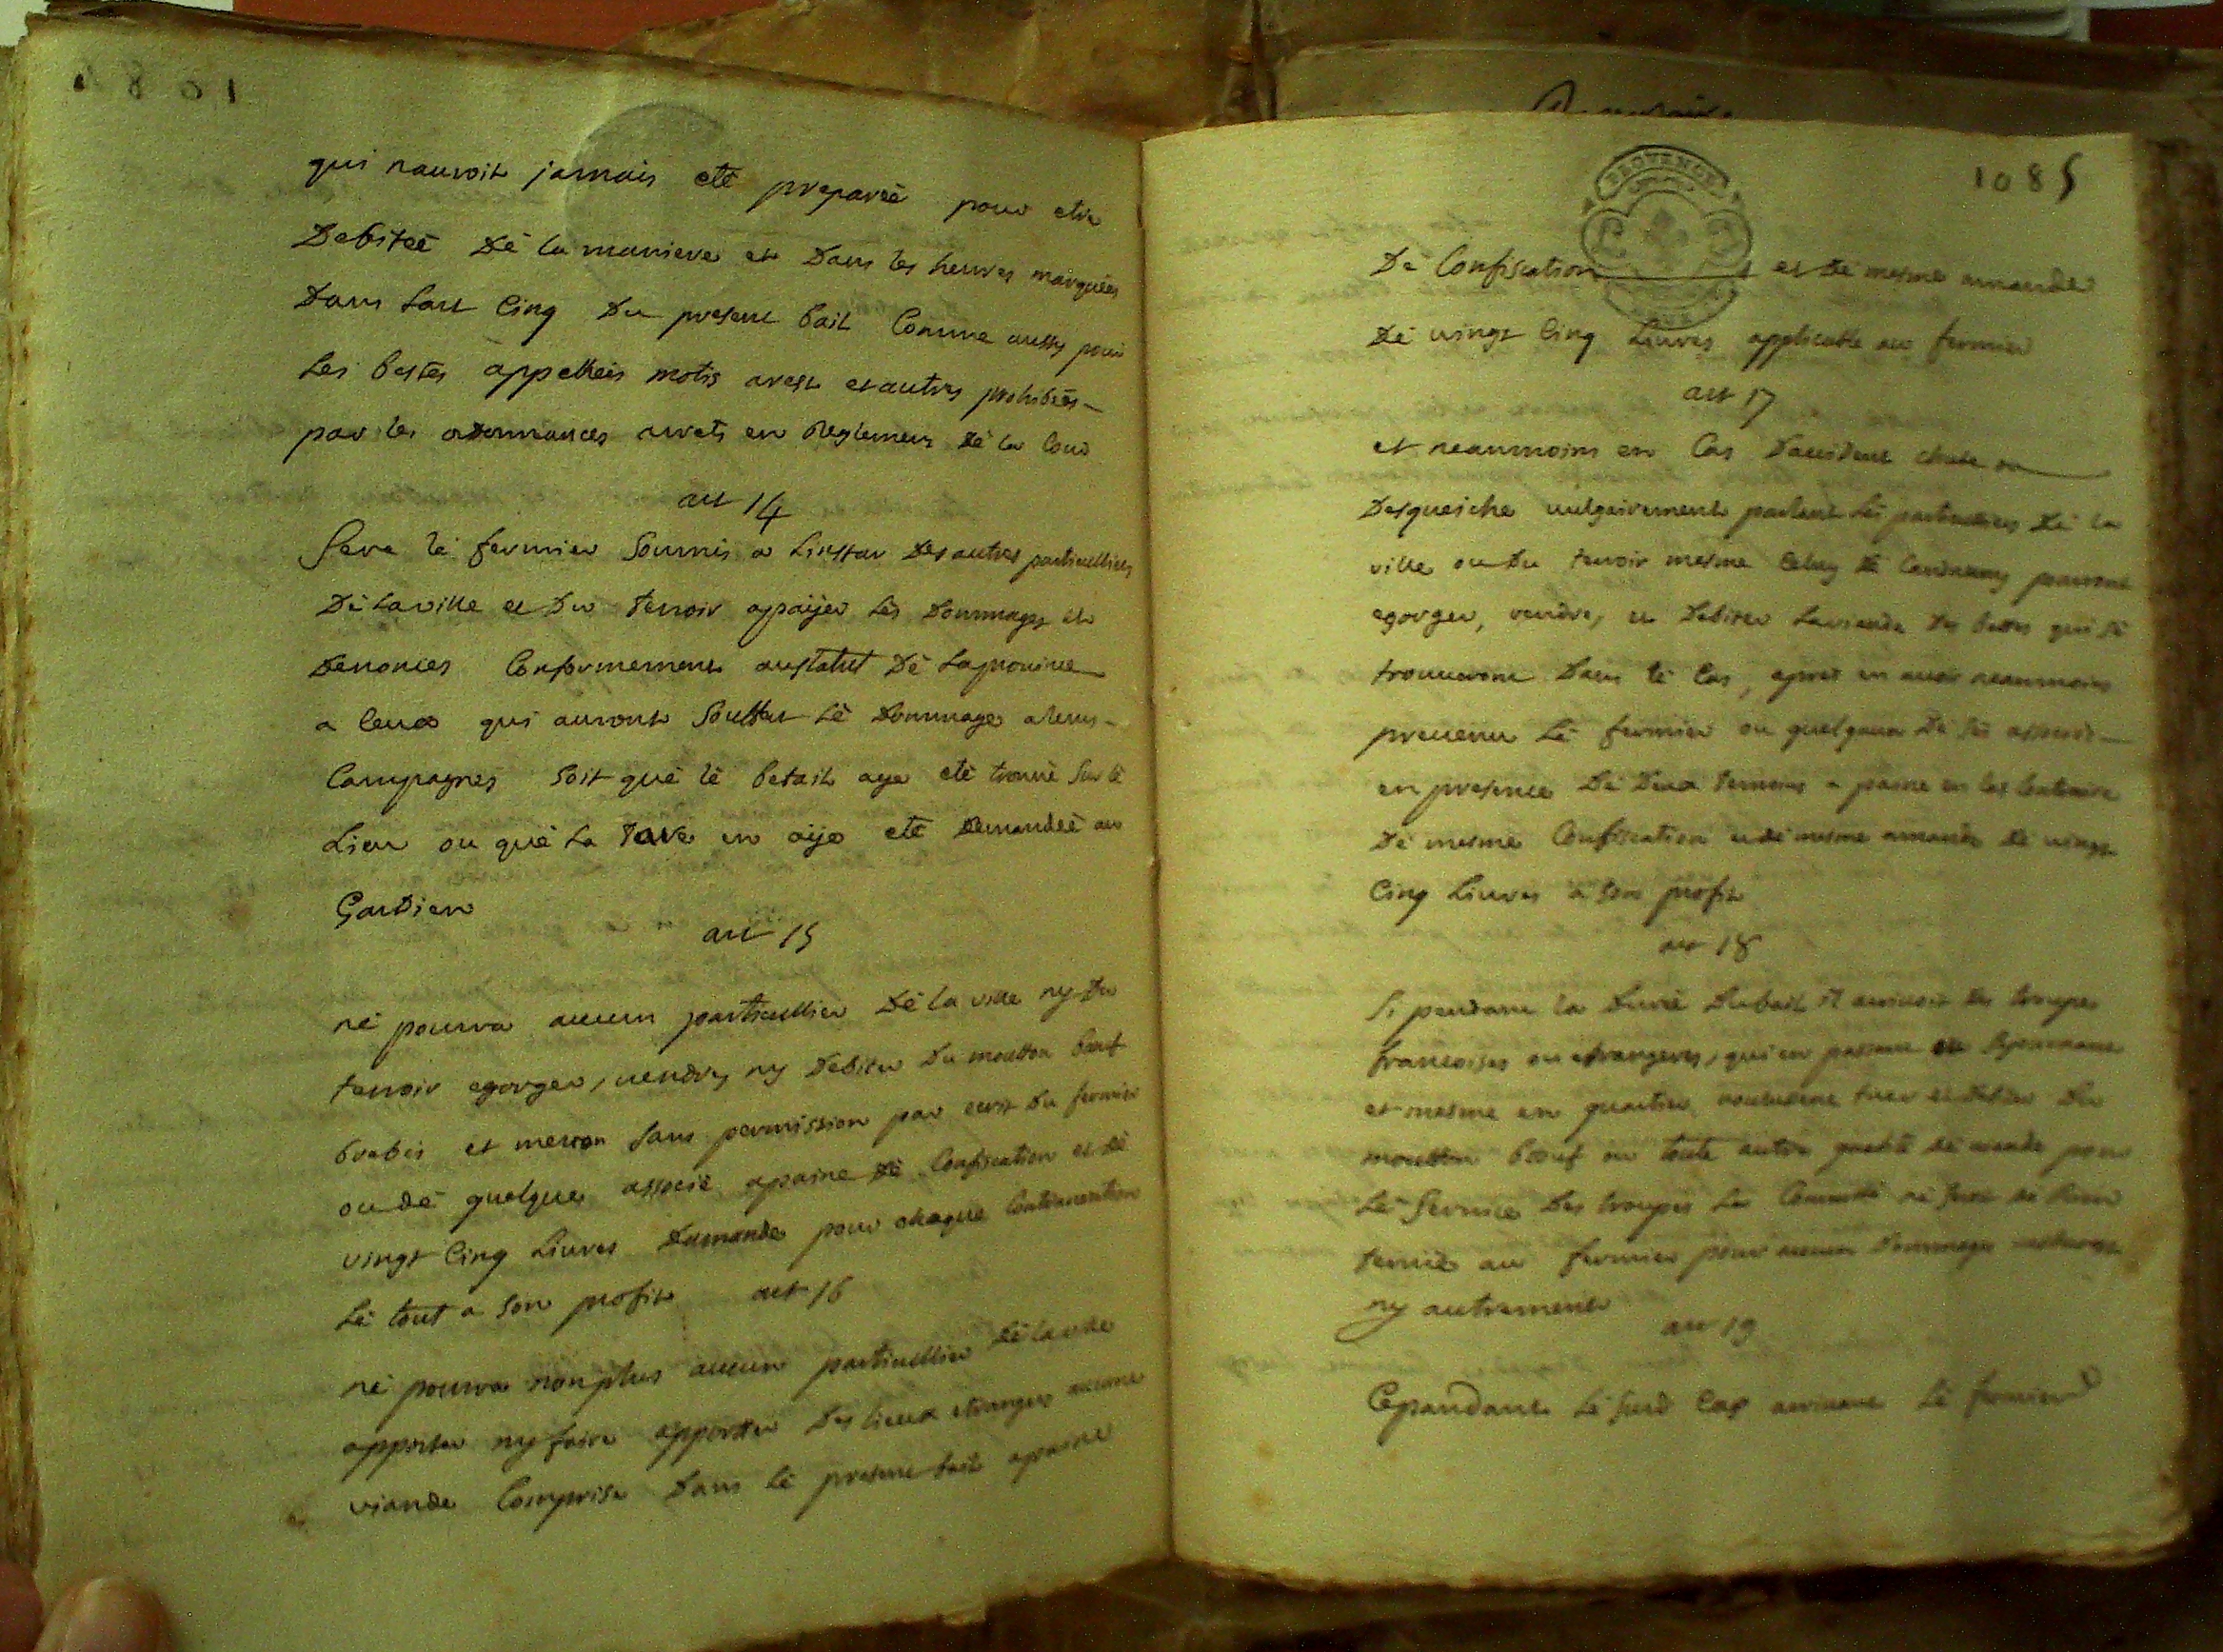 qui nauroit jamais eté preparéé pour etre
Debitéé Dé la maniere et Dans les heures marquées
Dans lart Cinq Du present bail Comme aussy pour
Les bestes appellées motis avest et autres prohibéés
par les ordonnances arrets en Reglemens Dé la Cour
art 14
Sera lé fermier Soumis a Linstar Des autres particulliers
Dé La ville et Du terroir apaÿer Lés Dommages et
Denonces Conformement austatut Dé Laprouince
a Ceux qui auront Souffert Lé Dommage aleurs
Campagnes Soit qué lé betail aye eté trouué Sur lé
Lieu ou qué La Tare en aÿe eté Demandéé au
Gardien
art 15
né pourra aucun particullier Dé la ville ny Du
terroir egorger, uendre, ny Debiter Du moutton beuf
brebis et menon Sans permission par ecrit Du fermier
ou dé quelque associé apaine Dé Confiscation et Dé
vingt Cinq Liures Damande pour chaque Contrauention
Lé tout a Son profit art 16
né pourra non plus aucun particullier Dé la ville
apporter ny faire apportter Des lieux etrangers aucune
viande Comprise Dans Lé present bail apaine
1085
PROVENCE
Dé Confiscation et Dé mesme amande
Dé vingt Cinq Liures applicable au fermier
art 17
et neanmoins en Cas Daccident chute ou
Desqueiche uulgairement parlant Les particuliers Dé la
ville ou Du terroir mesme Celuy Dé pourront
egorger, vendre, et Debiter La viande Des bettes qui Sé
trouueront Dans lé Cas, apres en auoir neanmoins
preuenu Lé fermier ou quelquun Dé Sés associés
en presence Dé Deux temoins a paine en Cas Contraire
Dé mesme Confiscation et dé mesme amande Dé vingt
Cinq Liures a Son profit
art 18
Si pendant la Duréé Dubail il arriuoit Des troupes
francoises ou etrangeres, qui en passant ou
et mesme en quartier voulussent tuer et Debiter Du
moutton boeuf ou toute autre qualité dé viande pour
Lé Seruice Des troupes La Commté né Sera dé Rien
tenuë au fermier pour aucun Dommage
ny autrement
art 19
Cepandant Lé Surd Cas arriuant Lé fermier